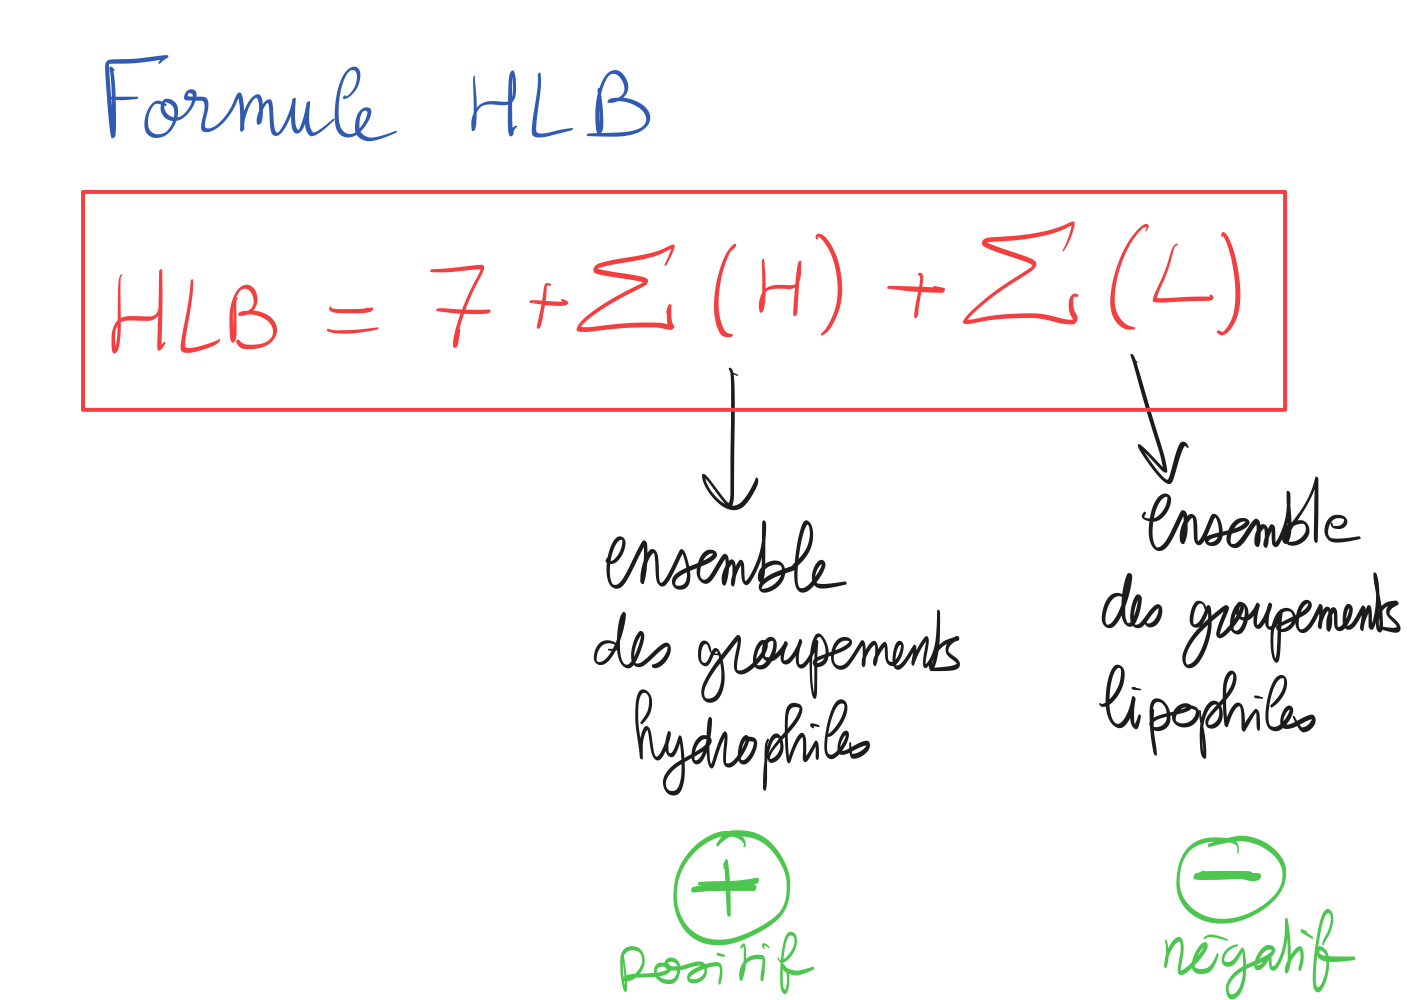 Formule HLB
HLB = 7 + Σ (H) + Σ (L)
ensemble
des groupements
hydrophiles
ensemble
des groupements
lipophiles
+
positif
−
négatif